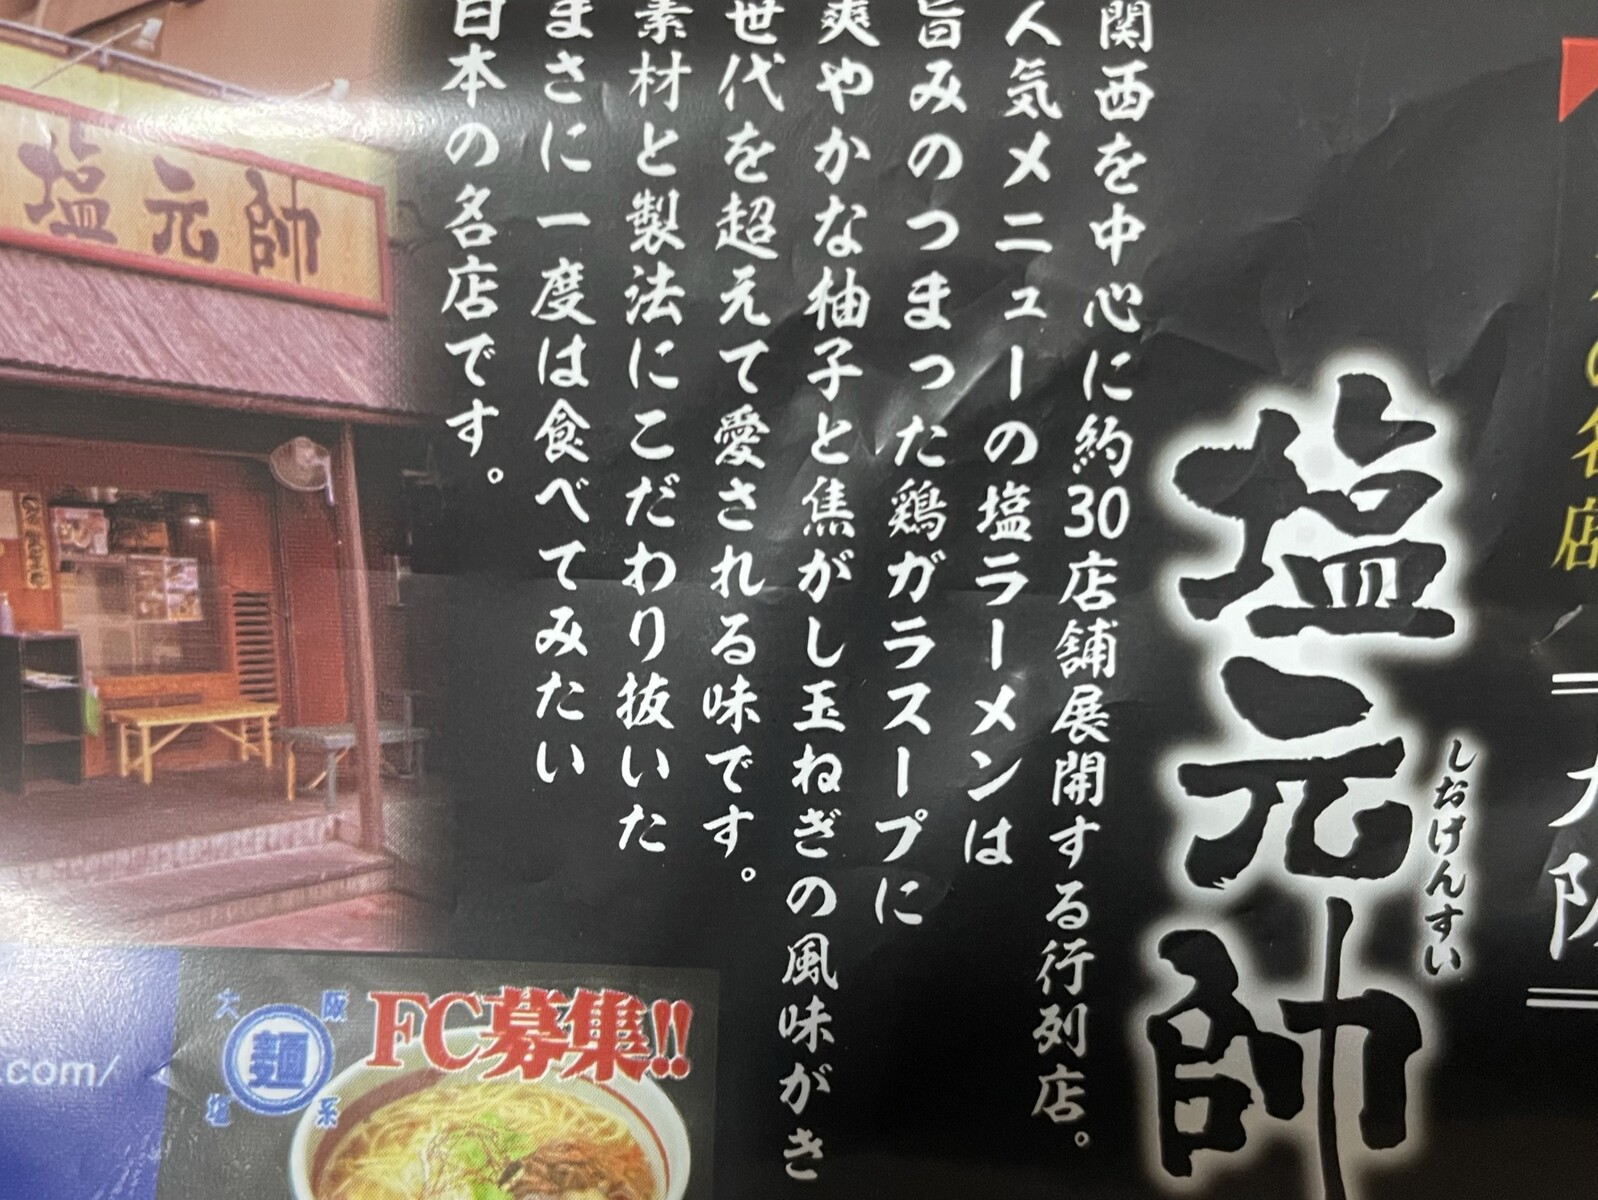 の名店
大阪
塩元帥
しおげんすい
関西を中心に約30店舗展開する行列店。
人気メニューの塩ラーメンは
旨みのつまった鶏ガラスープに
爽やかな柚子と焦がし玉ねぎの風味がき
世代を超えて愛される味です。
素材と製法にこだわり抜いた
まさに一度は食べてみたい
日本の名店です。
塩元帥
FC募集!!
大阪
麺
塩系
.com/